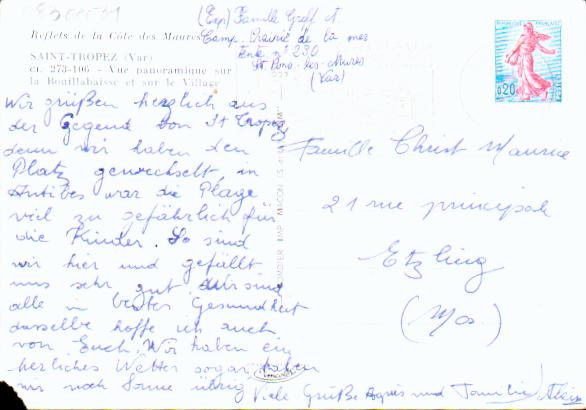 (Exp) Famille Greff A.
Camp. Prairie de la mer
Tente n° 230
St Pons-les-Mures
(Var)
Reflets de la Côte des Maures
SAINT-TROPEZ (Var)
CI. 273-106 - Vue panoramique sur
la Bouillabaisse et sur le Village
REPUBLIQUE FRANÇAISE
0,20
Wir grüßen herzlich aus
der Gegend von St Tropez
denn wir haben den
Platz gewechselt, in
Antibes war die Plage
viel zu gefährlich für
die Kinder. So sind
wir hier und gefällt
uns sehr gut. Wir sind
alle in bester Gesundheit
dasselbe hoffe ich auch
von Euch. Wir haben ein
herliches Wetter sogar haben
wir noch Sonne übrig Viele Grüße Agnès und Familie
Famille Christ Maurice
21 rue principale
Etzling
(Mos.)
IMP. MACON